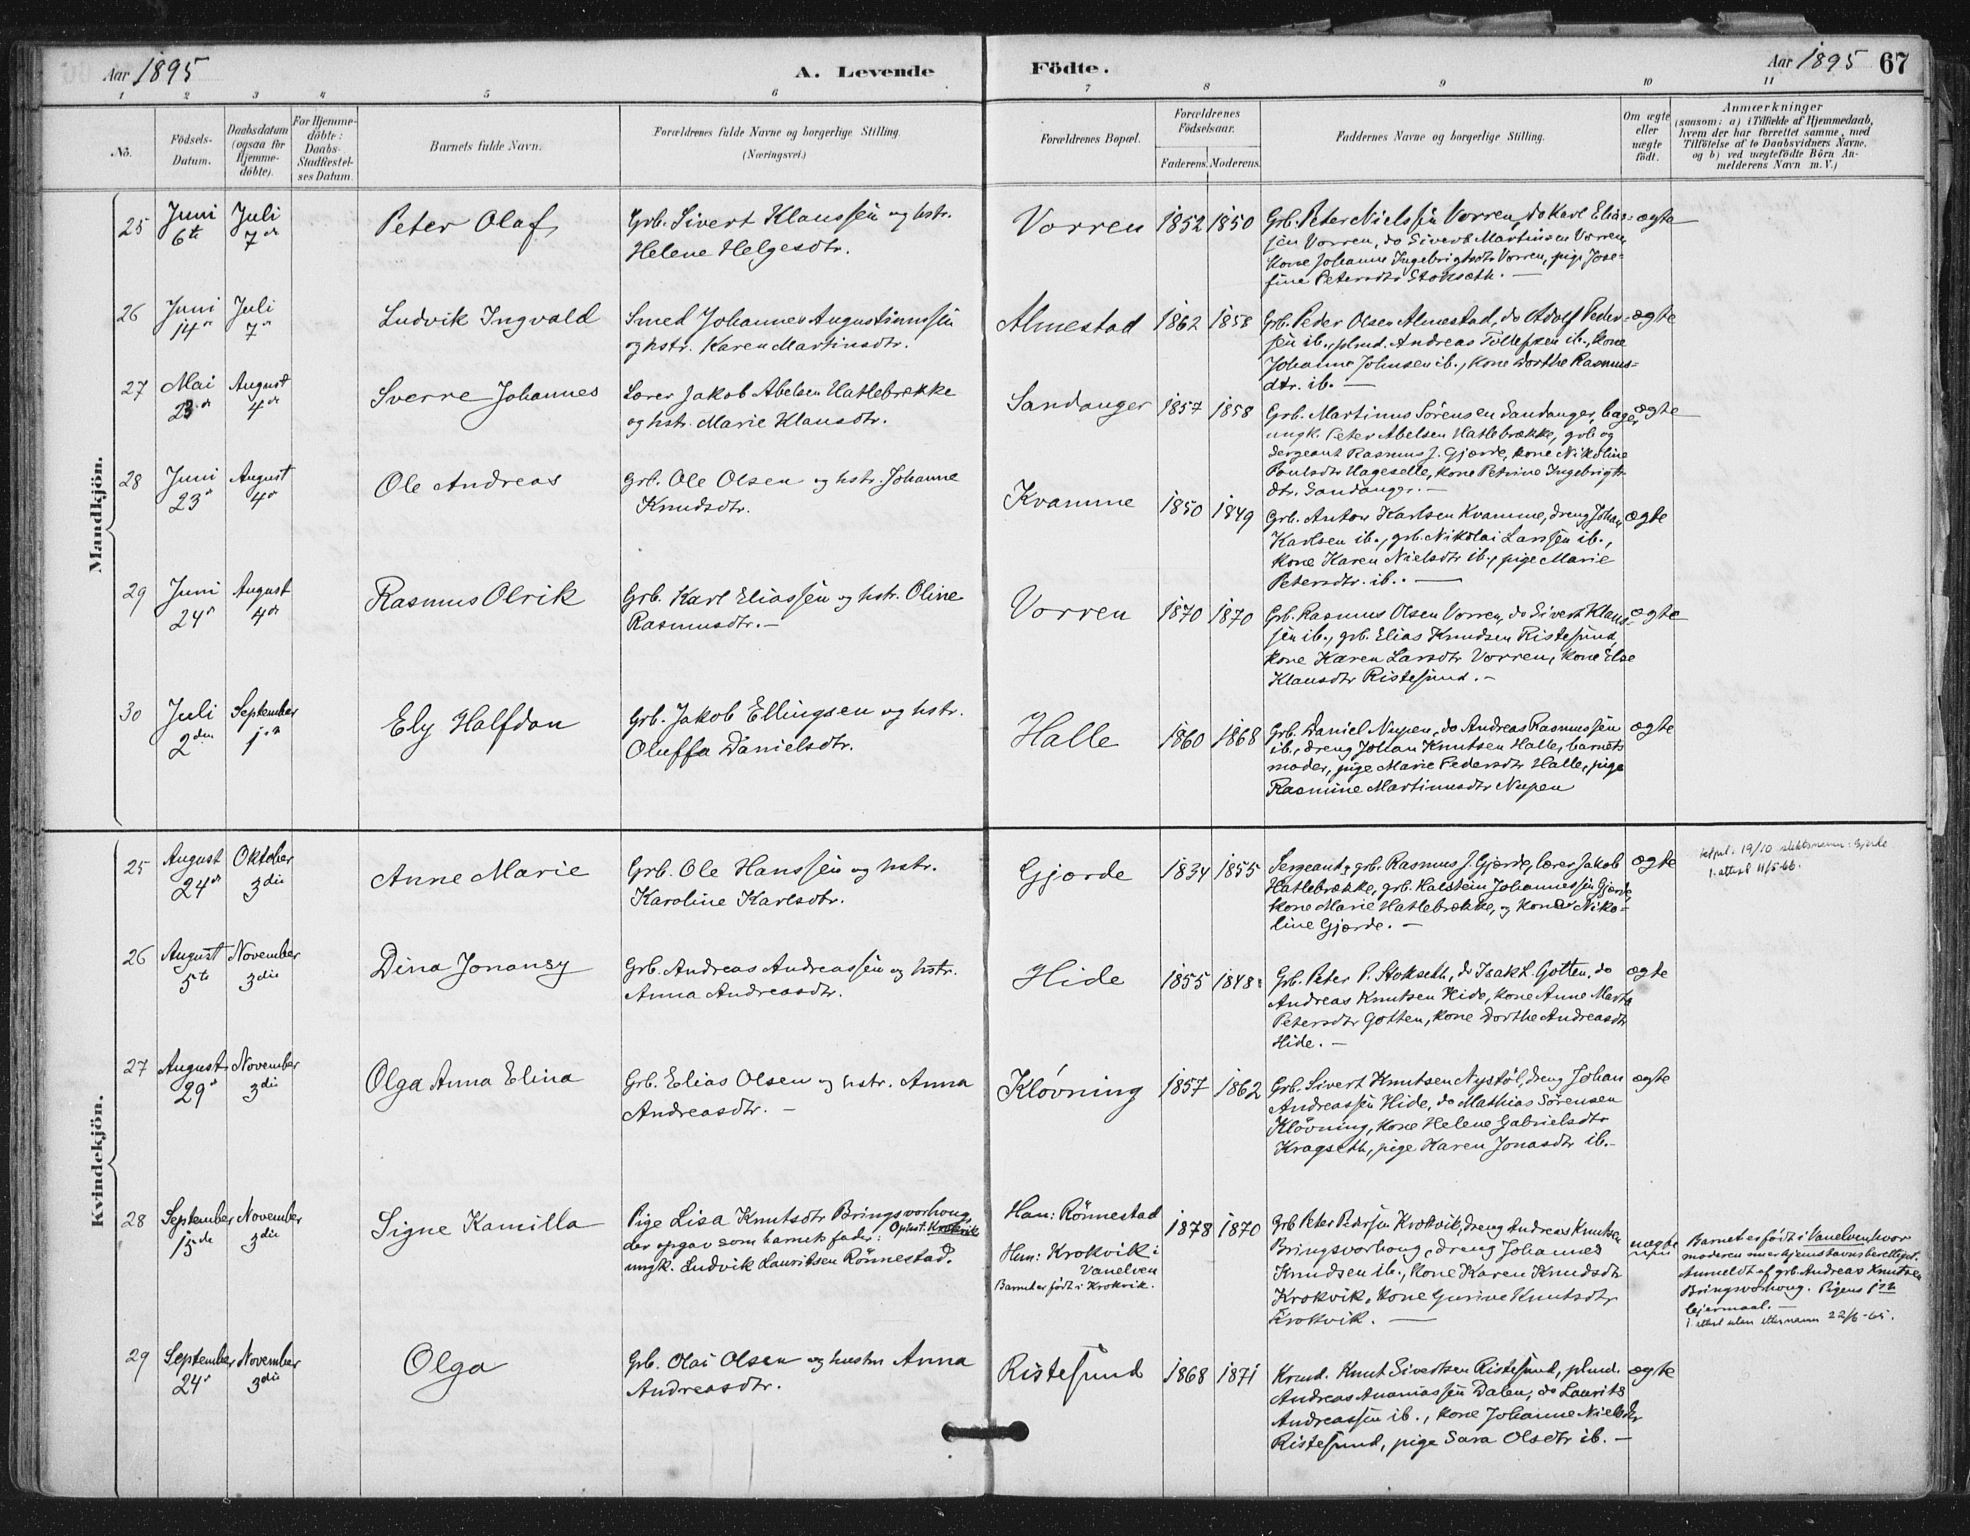 Aar 1895
A. Levende
Födte.
Aar 1895 67
1 2 3 4 5 6 7 8 9 10 11
No.
Födsels-
Datum.
Daabsdatum
(ogsaa for
Hjemme-
döbte).
For Hjemme-
döbte:
Daabs-
Stadfæstel-
ses Datum.
Barnets fulde Navn.
Forældrenes fulde Navne og borgerlige Stilling.
(Næringsvei.)
Forældrenes Bopæl.
Forældrenes
Födselsaar.
Faderens. Moderens.
Faddernes Navne og borgerlige Stilling.
Om ægte
eller
uægte
født.
Anmærkninger
(saasom: a) i Tilfælde af Hjemmedaab,
hvem der har forrettet samme, med
Tilföielse af to Daabsvidners Navne,
og b) ved uægtefödte Börn An-
melderens Navn m. V.)
Mandkjön.
25
Juni
6te
Juli
7de
Peter Olaf
Grb. Sivert Klaussen og hstr.
Helene Helgesdtr.
Vorren
1852 1850
Grb. Peter Nielssen Vorren, do Karl Elias-
sen Vorren, do Sivert Martinsen Vorren,
kone Johanne Ingebrigtsdtr Vorren, pige Jose-
fine Petersdtr Stokseth. —
ægte
26
Juni
14de
Juli
7de
Ludvik Ingvald
Smed Johannes Augustinussen
og hstr. Karen Martinsdtr.
Almestad
1862 1858
Grb. Peder Olsen Almestad, do Adolf Peder-
sen ib., plmd. Andreas Tollefsen ib., kone
Johanne Johnsen ib., kone Dorthe Rasmus-
dtr. ib. —
ægte
27
Mai
23de
August
4de
Sverre Johannes
Lærer Jakob Abelsen Hatlebrække
og hstr. Marie Klausdtr.
Sandanger
1857 1858
Grb. Martinus Sörensen Sandanger, bager
ungk. Peter Abelsen Hatlebrække, grb og
sergeant Rasmus J. Gjærde, kone Nikoline
Poulsdtr Hageselle, kone Petrine Ingebrigts
dtr. Sandanger. —
ægte
28
Juni
23de
August
4de
Ole Andreas
Grb. Ole Olsen og hstr. Johanne
Knudsdtr.
Kvamme
1850 1849
Grb. Anton Karlsen Kvamme, dreng Johan
Karlsen ib., grb. Nikolai Larssen ib.,
kone Karen Nielsdtr ib., pige Marie
Petersdtr. ib. —
ægte
29
Juni
24de
August
4de
Rasmus Olrik
Grb. Karl Eliassen og hstr. Oline
Rasmusdtr. —
Vorren
1870 1870
Grb. Rasmus Olsen Vorren, do Sivert Klaus-
sen ib., grb. Elias Knudsen Ristesund,
kone Karen Larsdtr Vorren, kone Else
Klausdtr Ristesund. —
ægte
30
Juli
2den
September
1ste
Ely Halfdan
Grb. Jakob Ellingsen og hstr.
Oluffa Danielsdtr.
Halle
1860 1868
Grb. Daniel Nupen, do Andreas Rasmussen
ib., dreng Johan Knutsen Halle, barnets
moder, pige Marie Pedersdtr Halle, pige
Rasmine Martinusdtr Nupen
ægte
Kvindekjön.
25
August
24de
Oktober
3die
Anne Marie
Grb. Ole Hanssen og hstr.
Karoline Karlsdtr.
Gjærde
1834 1855
Sergeant, grb. Rasmus J. Gjærde, lærer Jakob
Hatlebrække, grb. Halstein Johannessen Gjærde,
kone Marie Hatlebrække, og kone Niko-
line Gjærde. —
ægte
19/10 slektsnavn: Gjærde
1. attest 11/5-66.
26
August
5te
November
3die
Dina Jonansy
Grb. Andreas Andreassen og hstr.
Anna Andreasdtr.
Hide
1855 1848
Grb. Peter P. Stokseth, do Isak L. Gotten, do
Andreas Knutsen Hide, kone Anne Marta
Petersdtr Gotten, kone Dorthe Andreasdtr
Hide. —
ægte
27
August
29de
November
3die
Olga Anna Elina
Grb. Elias Olsen og hstr. Anna
Andreasdtr. —
Klövning
1857 1862
Grb. Sivert Knutsen Nystöl, dreng Johan
Andreassen Hide, do Mathias Sörensen
Klövning, kone Helene Gabrielsdtr
Kragseth, pige Karen Jonasdtr ib. —
ægte
28
September
15de
November
3die
Signe Kamilla
Pige Lisa Knutsdtr Bringsvorhoug,
der opgav som barnets fader: Opholdst: Krokvik
ungk. Ludvik Lauritsen Rönnestad.
Han: Rönnestad
Hun: Krokvik i
Vanelven
Barnet er født i Krokvik.
1878 1870
Grb Peter Pedersen Krokvik, dreng Andreas Knutsen
Bringsvorhoug, dreng Johannes
Knudsen ib., kone Karen Knudsdtr
Krokvik, kone Gurine Knutsdtr
Krokvik. —
uægte
Barnet er født i Vanelven, hvor
moderen om er hjemstavnsberettiget.
Anmeldt af grb. Andreas Knutsen
Bringsvorhoug. Pigens 1ste
leiermaal. —
1 attest uten etternavn 22/6-65.
29
September
24de
November
3die
Olga
Grb. Olai Olsen og hustru Anna
Andreasdtr.
Ristesund
1868 1871
Krmd. Knut Sivertsen Ristesund, plmd.
Andreas Ananiassen Dalen, do Laurits
Andreassen ib., kone Johanne Nielsdtr
Ristesund, pige Sara Olsdtr ib. —
ægte